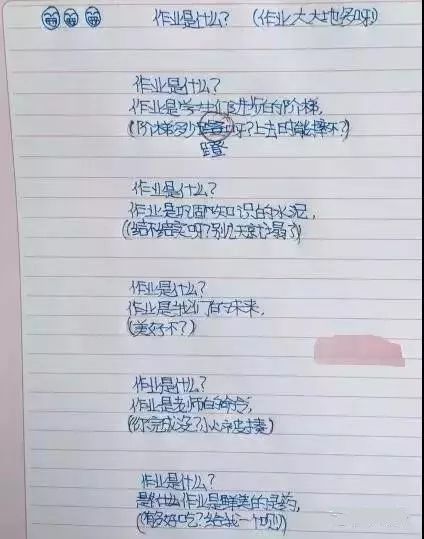 作业是什么？（作业大大地多呀！）
作业是什么？
作业是学生们进步的阶梯，
（阶梯多少蹬呀？上去时能摔不？）
蹬
作业是什么？
作业是巩固知识的水泥，
（结不结实呀？别几天就塌了）
作业是什么？
作业是我们的未来，
（美好不？）
作业是什么？
作业是老师的命令，
（你完成没？小心被揍）
作业是什么？
作业是的灵药，
（有多好吃？给我一个呗！）